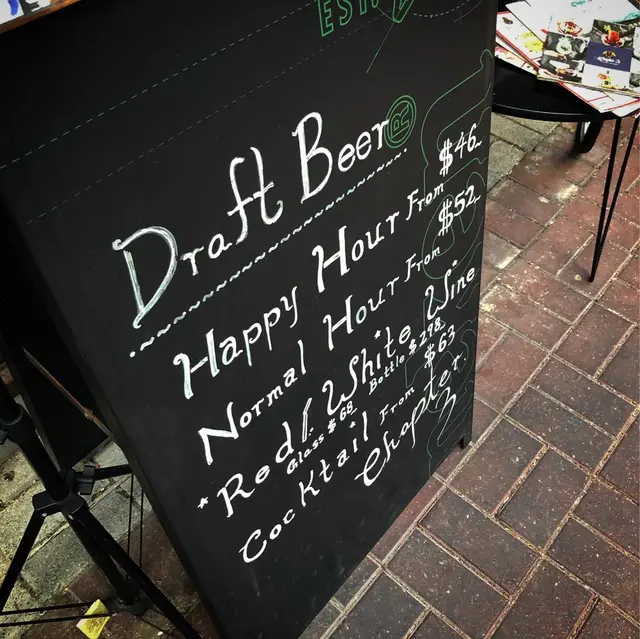 EST.
Draft Beer
Happy Hour From $46
Normal Hour From $52
*Red/White Wine*
Glass $68 Bottle $298
Cocktail From $63
Chapter 3